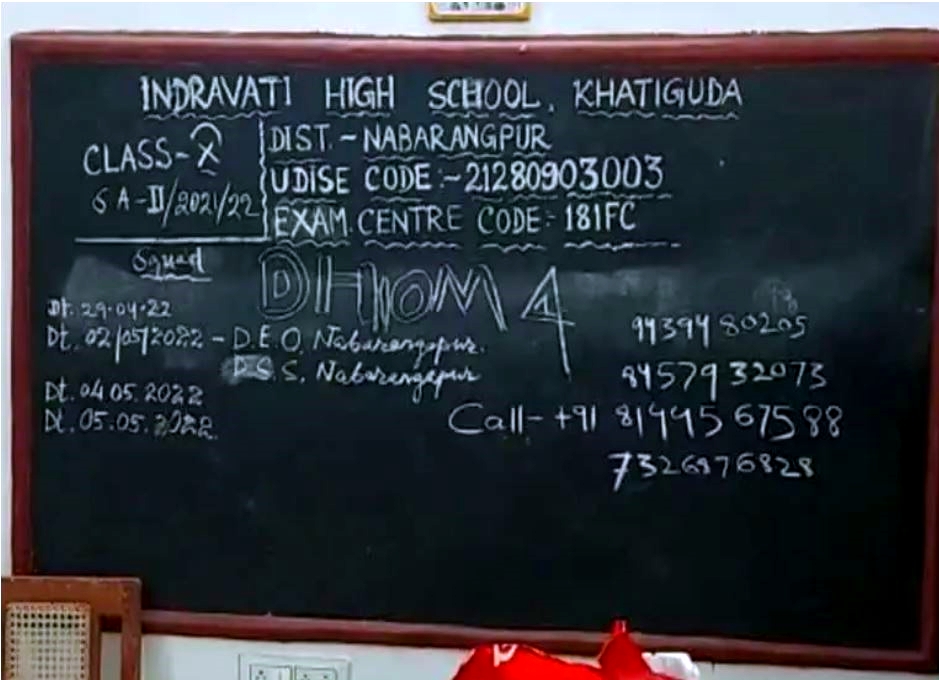 INDRAVATI HIGH SCHOOL, KHATIGUDA
CLASS-X
SA-II/2021/22
DIST.-NABARANGPUR
UDISE CODE:-21280903003
EXAM.CENTRE CODE:-181FC
Squad
Dt. 29.04.22
Dt. 02/05/2022 - D.E.O, Nabarangapur.
D.S.S, Nabarangapur
Dt. 04.05.2022
Dt. 05.05.2022.
DHOM 4
94394 80205
8457932073
Call- +91 81445 67588
7326876828